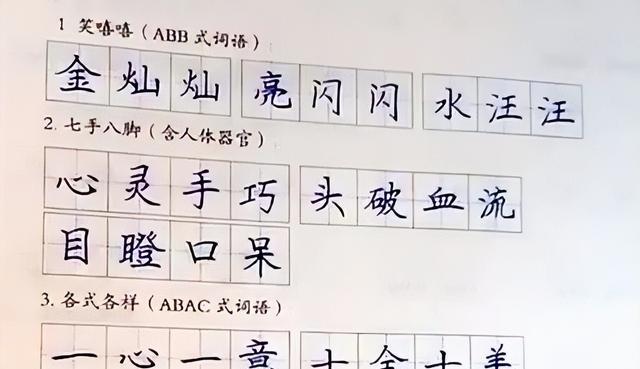 1 笑嘻嘻（ABB 式词语）
金灿灿 亮闪闪 水汪汪
2. 七手八脚（含人体器官）
心灵手巧 头破血流
目瞪口呆
3. 各式各样（ABAC 式词语）
一心一意 十全十美